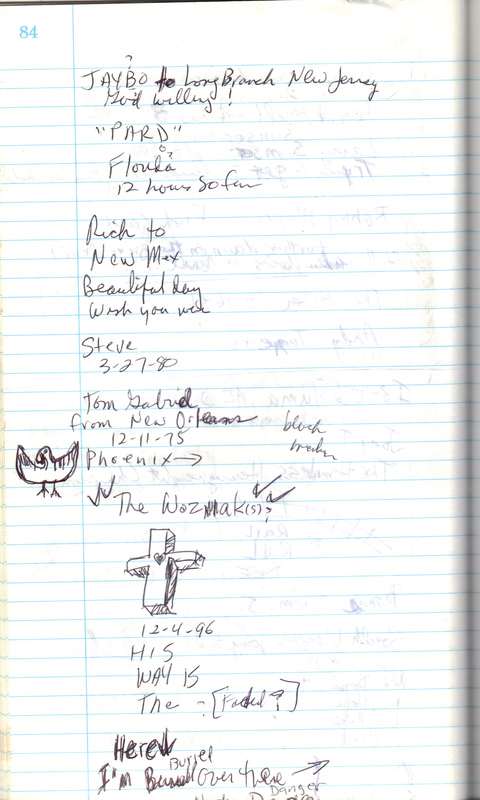 84
?
JAYBO to Long Branch New Jersey
God willing!
"PARD"
Florida
12 hours So far
Rich to
New Mex
Beautiful day
Wish you were
Steve
3-27-80
Tom Gabriel
from New Orleans
12-11-75
Phoenix →
black
The Wozniak(s)?
12-4-96
HIS
WAY IS
The - [Faded?]
Here
Buried
I'm over there →
Danger